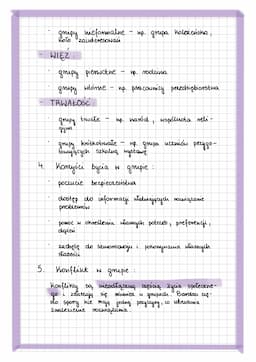 · grupy nieformalne – np. grupa koleżeńska,
koło zainteresowań
- WIĘŹ:
· grupy pierwotne – np. rodzina
· grupy wtórne – np. pracownicy przedsiębiorstwa
- TRWAŁOŚĆ:
· grupy trwałe – np. naród, wspólnota reli-
gijna
· grupy krótkotrwałe – np. grupa uczniów przygo-
towujących szkolną wystawę
4. Korzyści bycia w grupie:
· poczucie bezpieczeństwa
· dostęp do informacji ułatwiających rozwiązanie
problemów
· pomoc w określeniu własnych potrzeb, preferencji,
dążeń
· zachętę do samorozwoju i pokonywania własnych
słabości
5. Konflikt w grupie:
Konflikty są nieodłączną częścią życia społeczne-
go i zdarzają się również w grupach. Bardzo czę-
sto spory nie mają jednej przyczyny, co utrudnia
znalezienie rozwiązania.